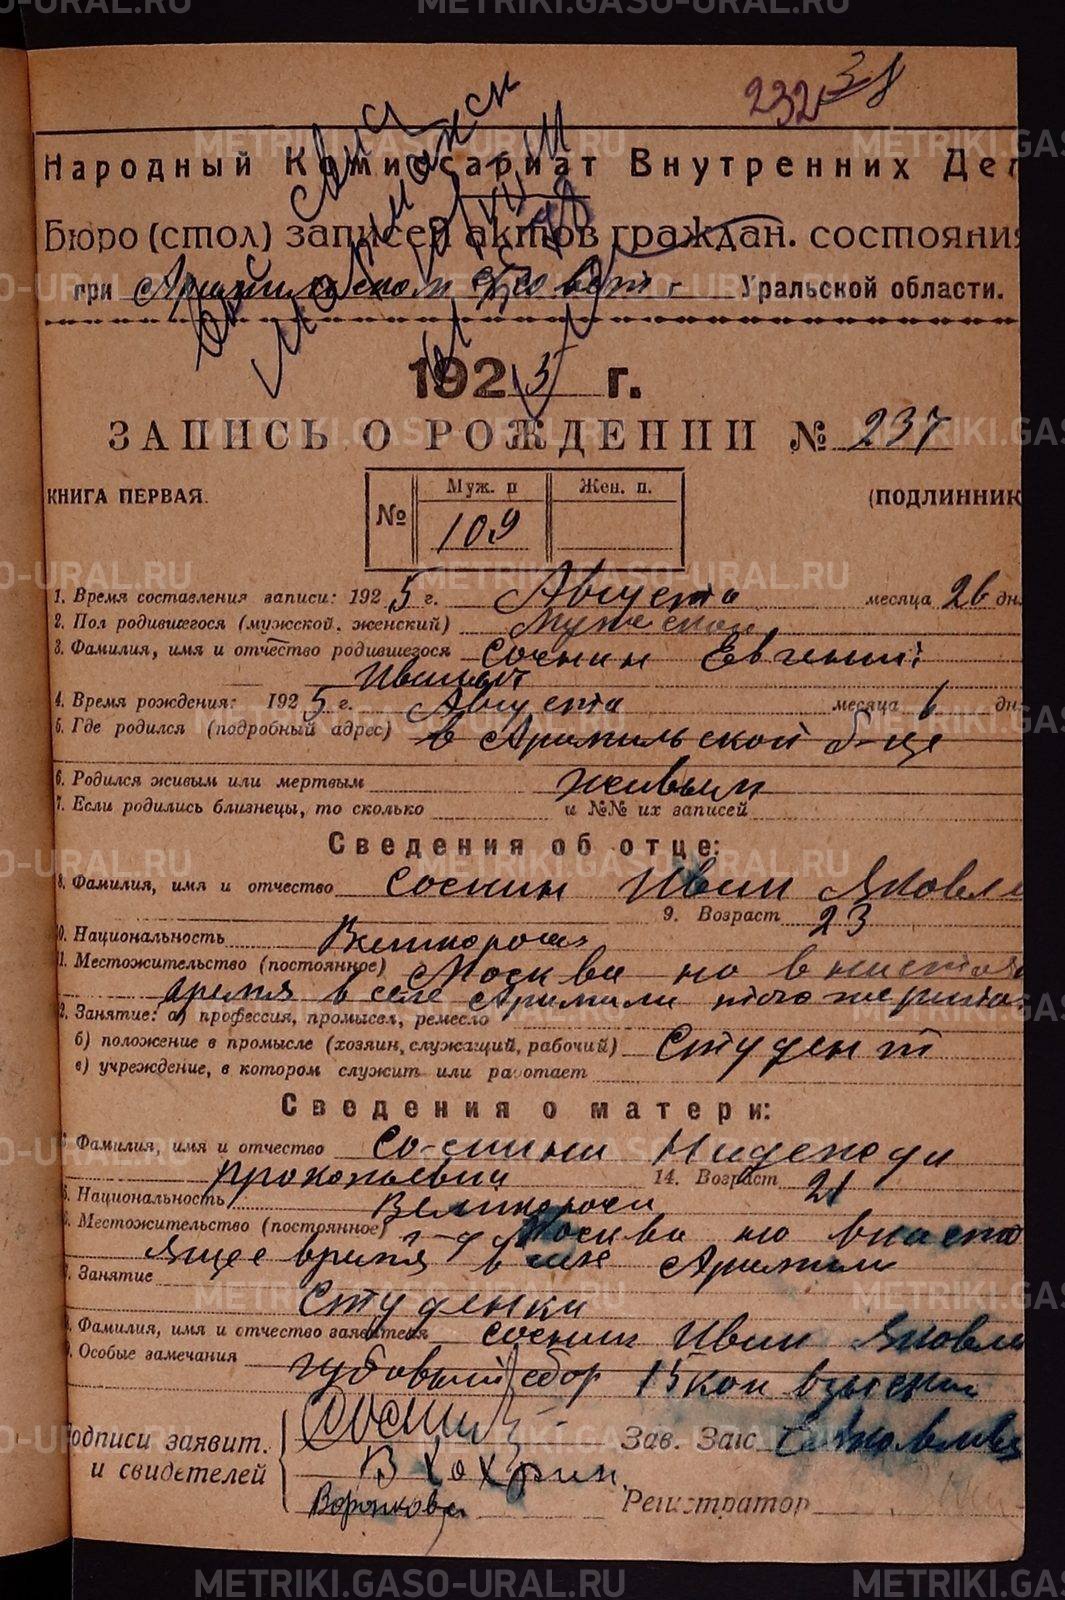 232 38
Народный Комиссариат Внутренних Дел
Бюро (стол) записей актов граждан. состояния
при Арамильском с/совет. Уральской области.
1925 г.
ЗАПИСЬ О РОЖДЕНИИ № 237
КНИГА ПЕРВАЯ. (ПОДЛИННИК
№ Муж. п Жен. п.
109
1. Время составления записи: 1925 г. Августа месяца 26 дн.
2. Пол родившегося (мужской, женский) Мужской
3. Фамилия, имя и отчество родившегося Соснин Евгений
Иваныч
4. Время рождения: 1925 г. Августа месяца 6 дн.
5. Где родился (подробный адрес) в Арамильской б-це
6. Родился живым или мертвым живым
7. Если родились близнецы, то сколько и №№ их записей
Сведения об отце:
8. Фамилия, имя и отчество Соснин Иван Яковл
9. Возраст 23
10. Национальность Великоросс
11. Местожительство (постоянное) Москва но в настоя
время в селе Арамили
12. Занятие: а) профессия, промысел, ремесло
б) положение в промысле (хозяин, служащий, рабочий) Студент
в) учреждение, в котором служит или работает
Сведения о матери:
Фамилия, имя и отчество Соснина Надежда
Прокопьевна 14. Возраст 21
Национальность Великоросска
Местожительство (постоянное) г-д Москва но в насто
ящее время в селе Арамили
Занятие
Студентка
Фамилия, имя и отчество заявителя Соснин Иван Яковл
Особые замечания гербовый сбор 15 коп взыскан
Подписи заявит.
и свидетелей
Соснин
В Хохрин
Воронкова
Зав. Загс
Регистратор
METRIKI.GASO-URAL.RU